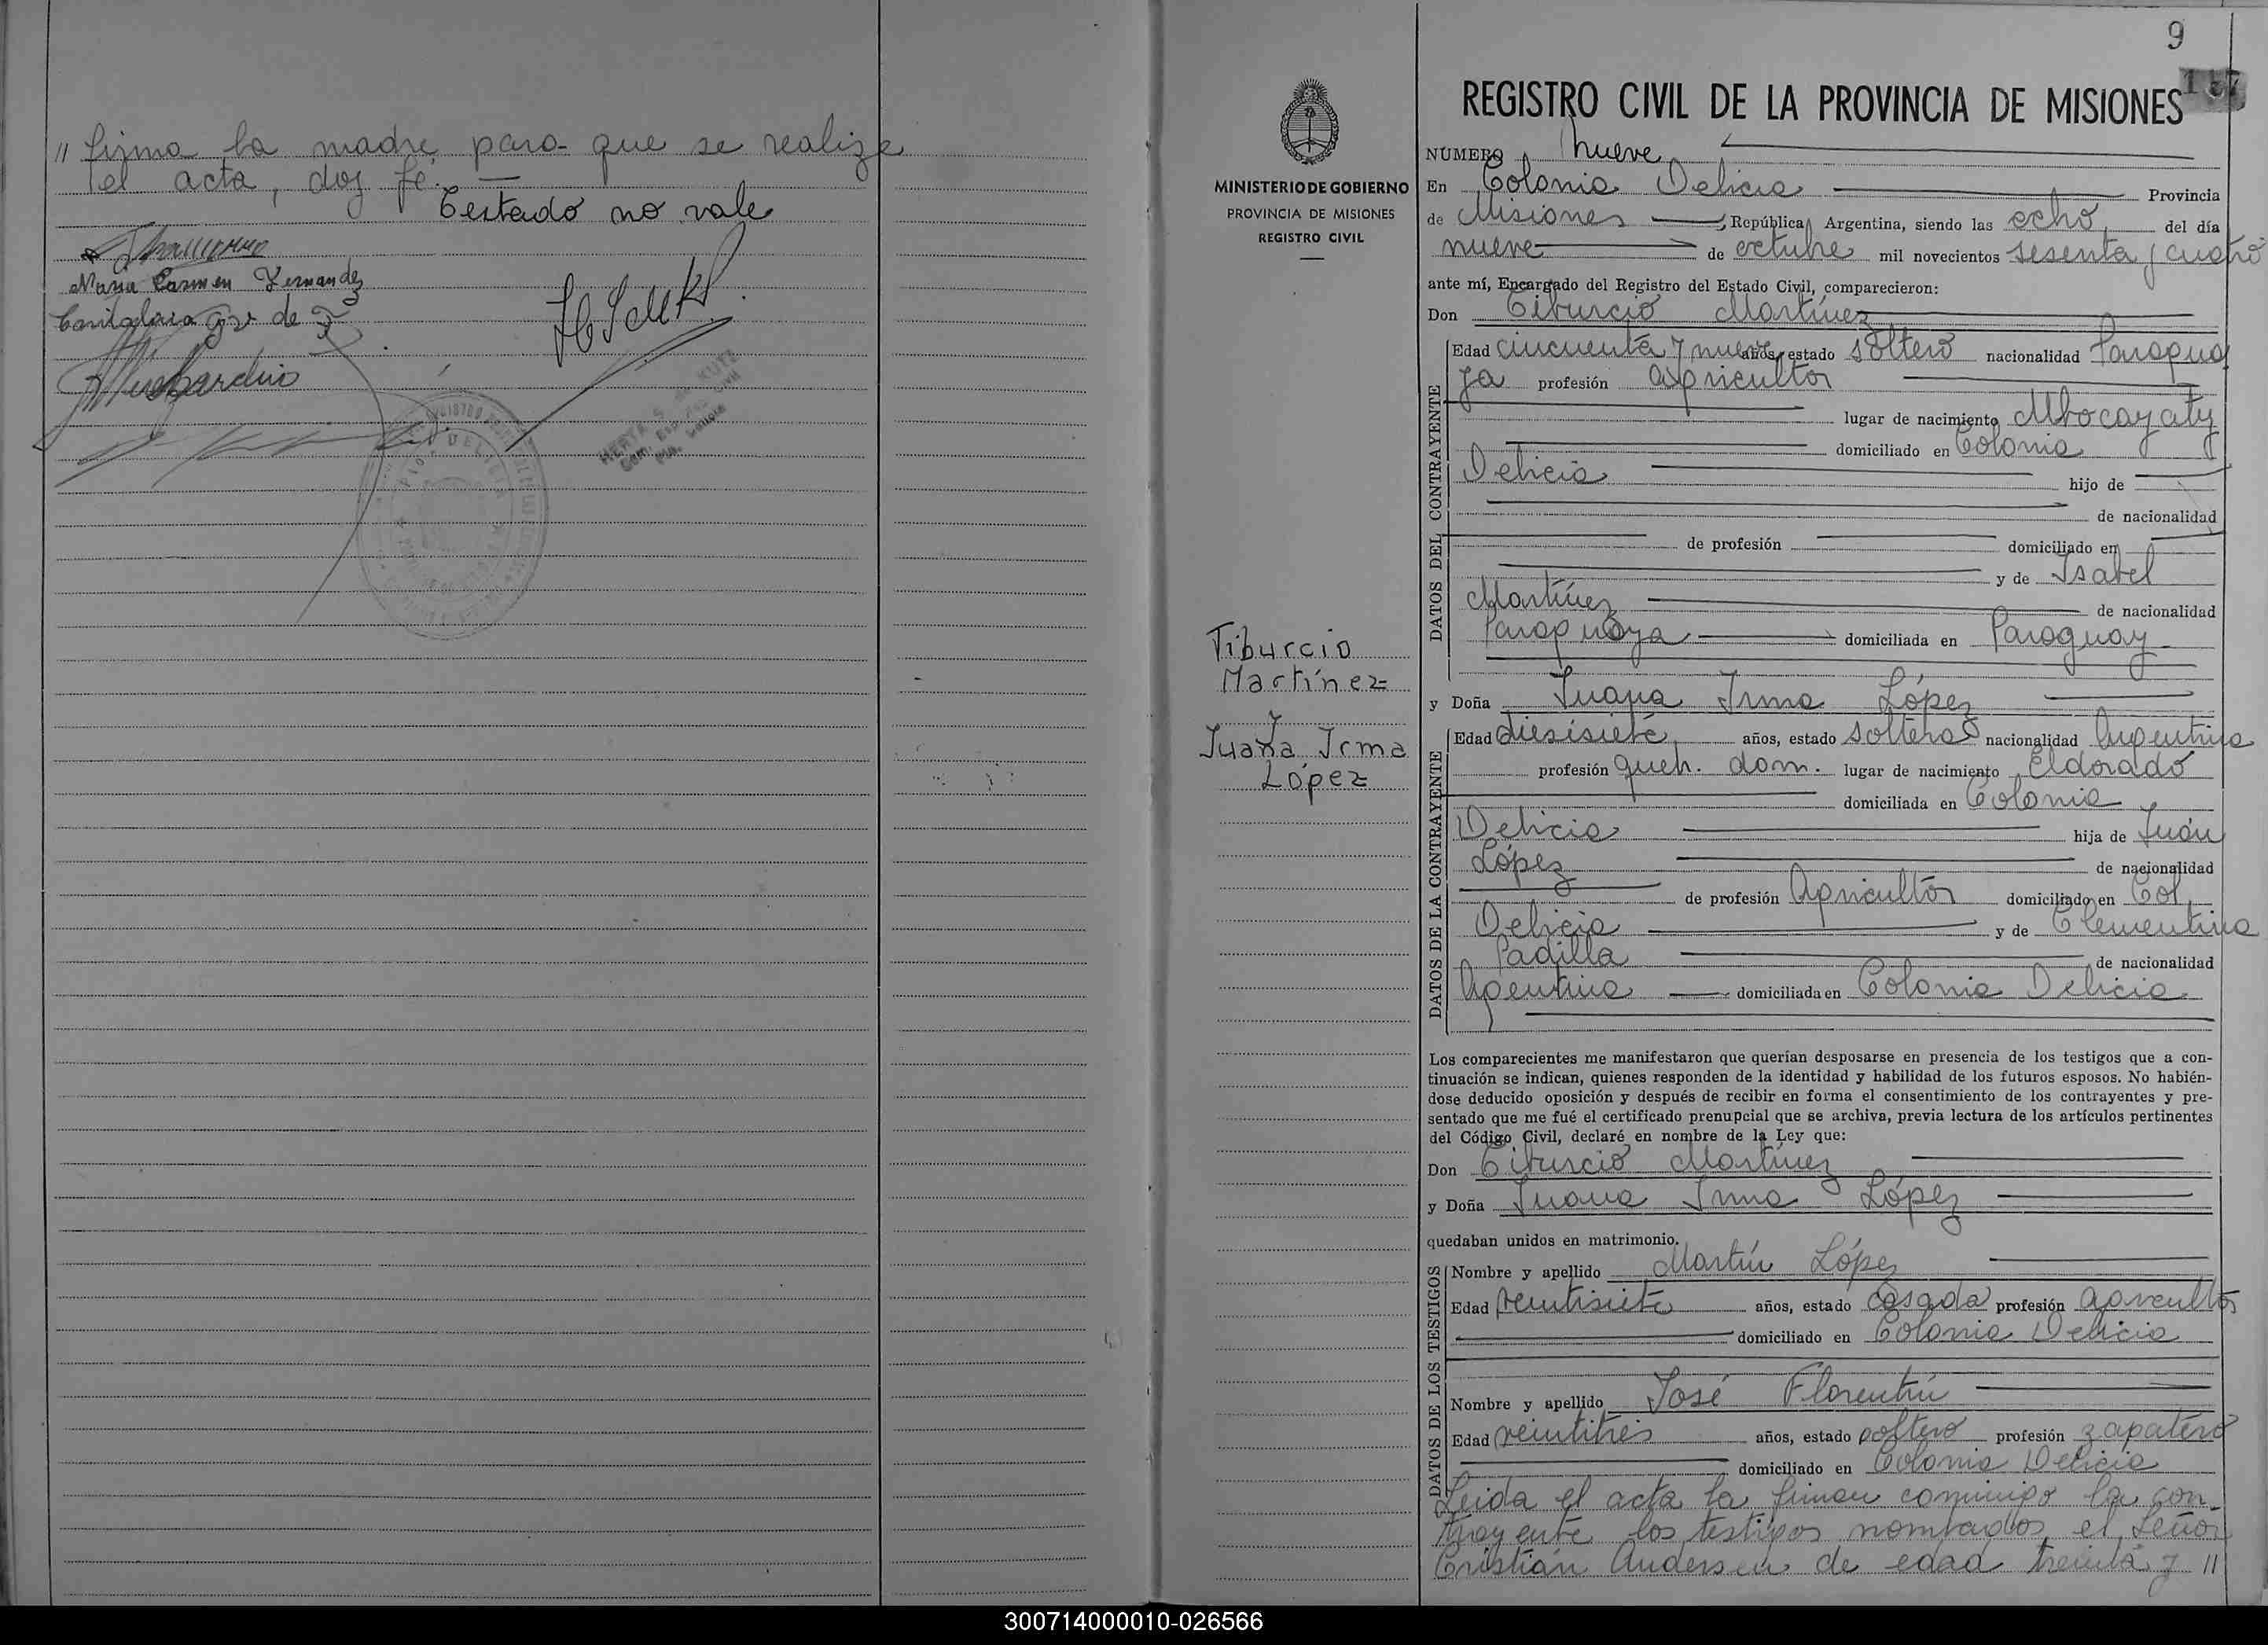 " firma la madre para que se realize
el acta, doy fé. —
Testado no vale
Maria Carmen Fernandez
de F
9
REGISTRO CIVIL DE LA PROVINCIA DE MISIONES
MINISTERIO DE GOBIERNO
PROVINCIA DE MISIONES
REGISTRO CIVIL
Tiburcio
Martínez
y
Juana Irma
López
NUMERO nueve
En Colonia Delicia Provincia
de Misiones, República Argentina, siendo las ocho del día
nueve de octubre mil novecientos sesenta y cuatro
ante mí, Encargado del Registro del Estado Civil, comparecieron:
Don Tiburcio Martínez
DATOS DEL CONTRAYENTE
Edad cincuenta y nueve años, estado soltero nacionalidad Paragua
ya profesión agricultor
lugar de nacimiento Mbocayaty
domiciliado en Colonia
Delicia hijo de
de nacionalidad
de profesión domiciliado en
y de Isabel
Martínez de nacionalidad
Paraguaya domiciliada en Paraguay
y Doña Juana Irma López
DATOS DE LA CONTRAYENTE
Edad diesisiete años, estado soltera nacionalidad Argentina
profesión queh. dom. lugar de nacimiento Eldorado
domiciliada en Colonia
Delicia hija de Juán
López de nacionalidad
de profesión Agricultor domiciliado en Col.
Delicia y de Clementina
Padilla de nacionalidad
Argentina domiciliada en Colonia Delicia
Los comparecientes me manifestaron que querían desposarse en presencia de los testigos que a con-
tinuación se indican, quienes responden de la identidad y habilidad de los futuros esposos. No habién-
dose deducido oposición y después de recibir en forma el consentimiento de los contrayentes y pre-
sentado que me fué el certificado prenupcial que se archiva, previa lectura de los artículos pertinentes
del Código Civil, declaré en nombre de la Ley que:
Don Tiburcio Martínez
y Doña Juana Irma López
quedaban unidos en matrimonio.
DATOS DE LOS TESTIGOS
Nombre y apellido Martín López
Edad veintisiete años, estado casado profesión agricultor
domiciliado en Colonia Delicia
Nombre y apellido José Florentín
Edad veintitrés años, estado soltero profesión zapatero
domiciliado en Colonia Delicia
Leida el acta la firman conmigo la con-
trayente los testigos nombrados, el señor
Cristián Andersen de edad treinta y "
300714000010-026566